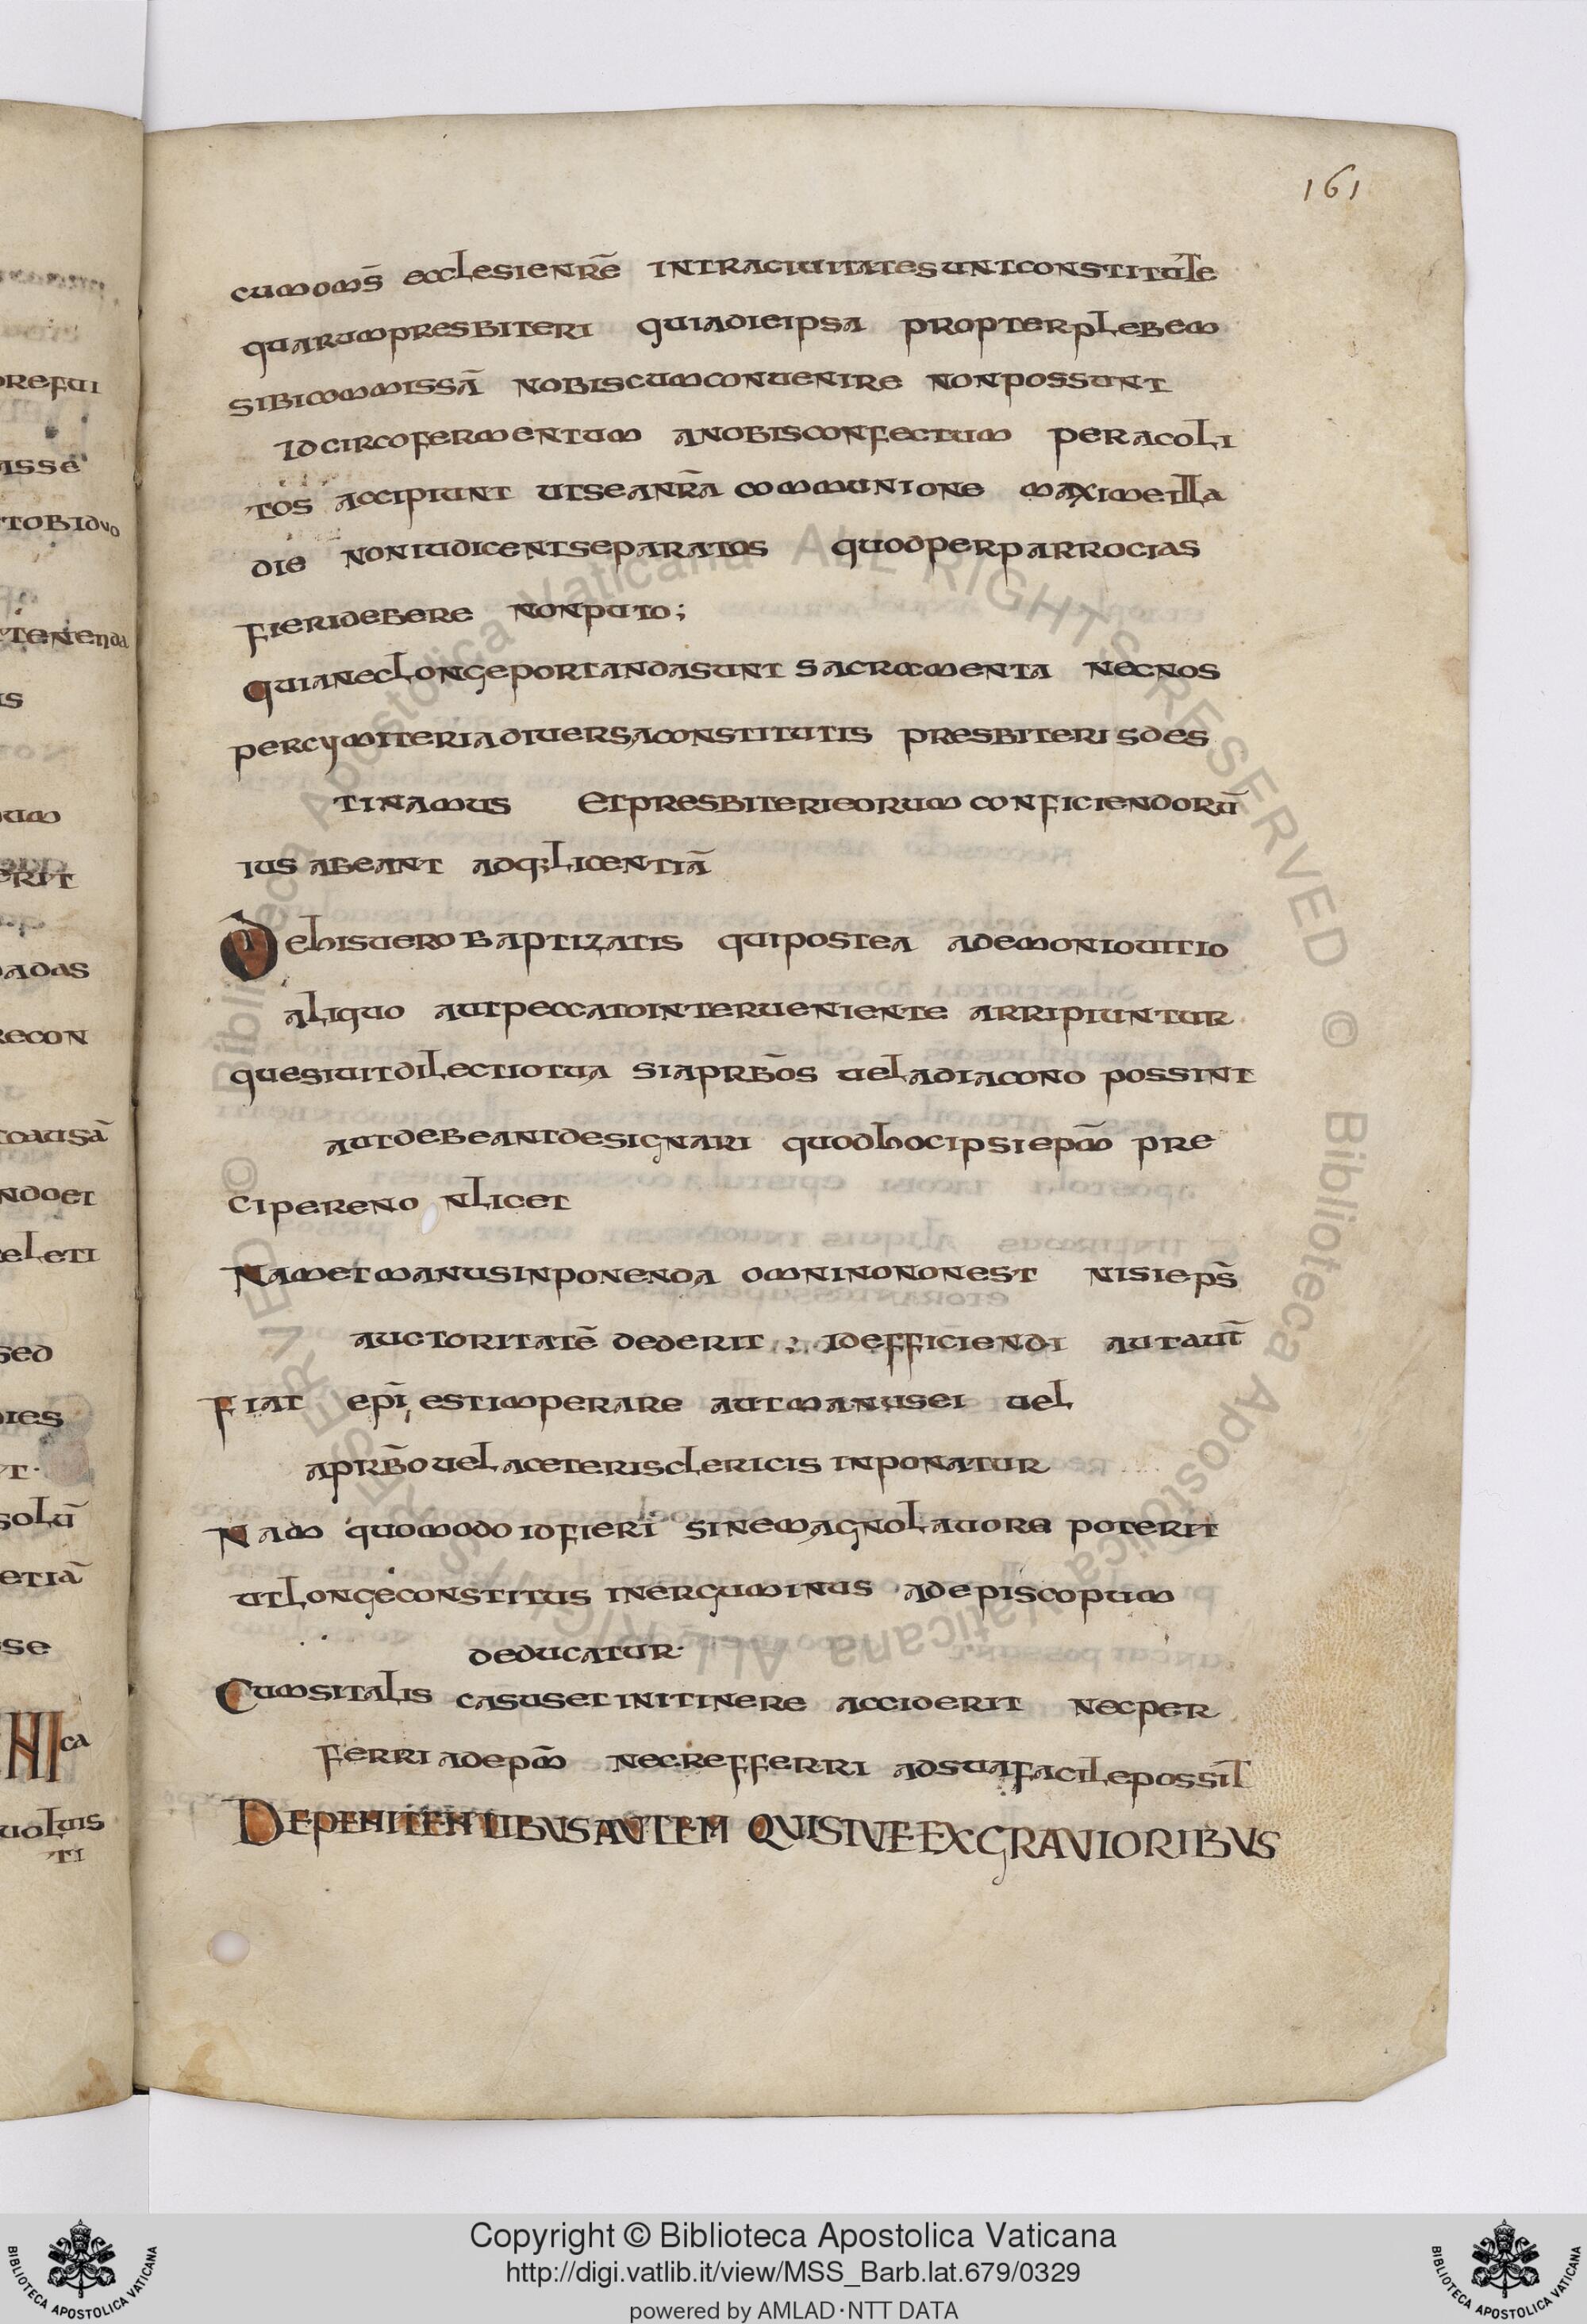 161
cumoms̄ ecclesienrē intraciuitatesuntconstitute
quarumpresbiteri quiadieipsa propterplebem
sibicommissā nobiscumconuenire nonpossunt
Idcircofermentum anobisconfectum peracoli
tos accipiunt utseanrā communione maximeilla
die noniudicentseparatos quodperparrocias
fieridebere nonputo;
quianeclongeportandasunt sacramenta necnos
percymiteriadiuersaconstitutis presbiterisdes
tinamus etpresbiterieorumconficiendorū
ius abeant adq;licentiā
Dehisuerobaptizatis quipostea ademoniouitio
aliquo autpeccatointerueniente arripiuntur
quesiuitdilectiotua siaprb̄os ueladiacono possint
autdebeantdesignari quodhocipsiepm̄ pre
cipereno nlicet
Nametmanusinponenda omninononest nisieps̄
auctoritatē dederit ; idefficiendi autaut̄
fiat epī estimperare autmanusei uel
aprb̄ouelaceterisclericis inponatur
Nam quomodoidfieri sinemagnolauore poterit
utlongeconstitus inerguminus adepiscopum
deducatur·
Cumsitalis casusetinitinere acciderit necper
ferriadepm̄ necrefferri adsuafacilepossit
DEPENITENTIBVSAVTEM QVISIVE·EXGRAVIORIBVS
orefui
isse
tobiduo
tenenda
is
um
erit
adas
recon
causā
ndoet
eleti
sed
ies
t·
solū
etiā
se
ca
uoluis
ti
Copyright © Biblioteca Apostolica Vaticana
http://digi.vatlib.it/view/MSS_Barb.lat.679/0329
powered by AMLAD·NTT DATA
BIBLIOTECA APOSTOLICA VATICANA
BIBLIOTECA APOSTOLICA VATICANA
© Biblioteca Apostolica Vaticana ALL RIGHTS RESERVED © Biblioteca Apostolica Vaticana ALL RIGHTS RESERVED